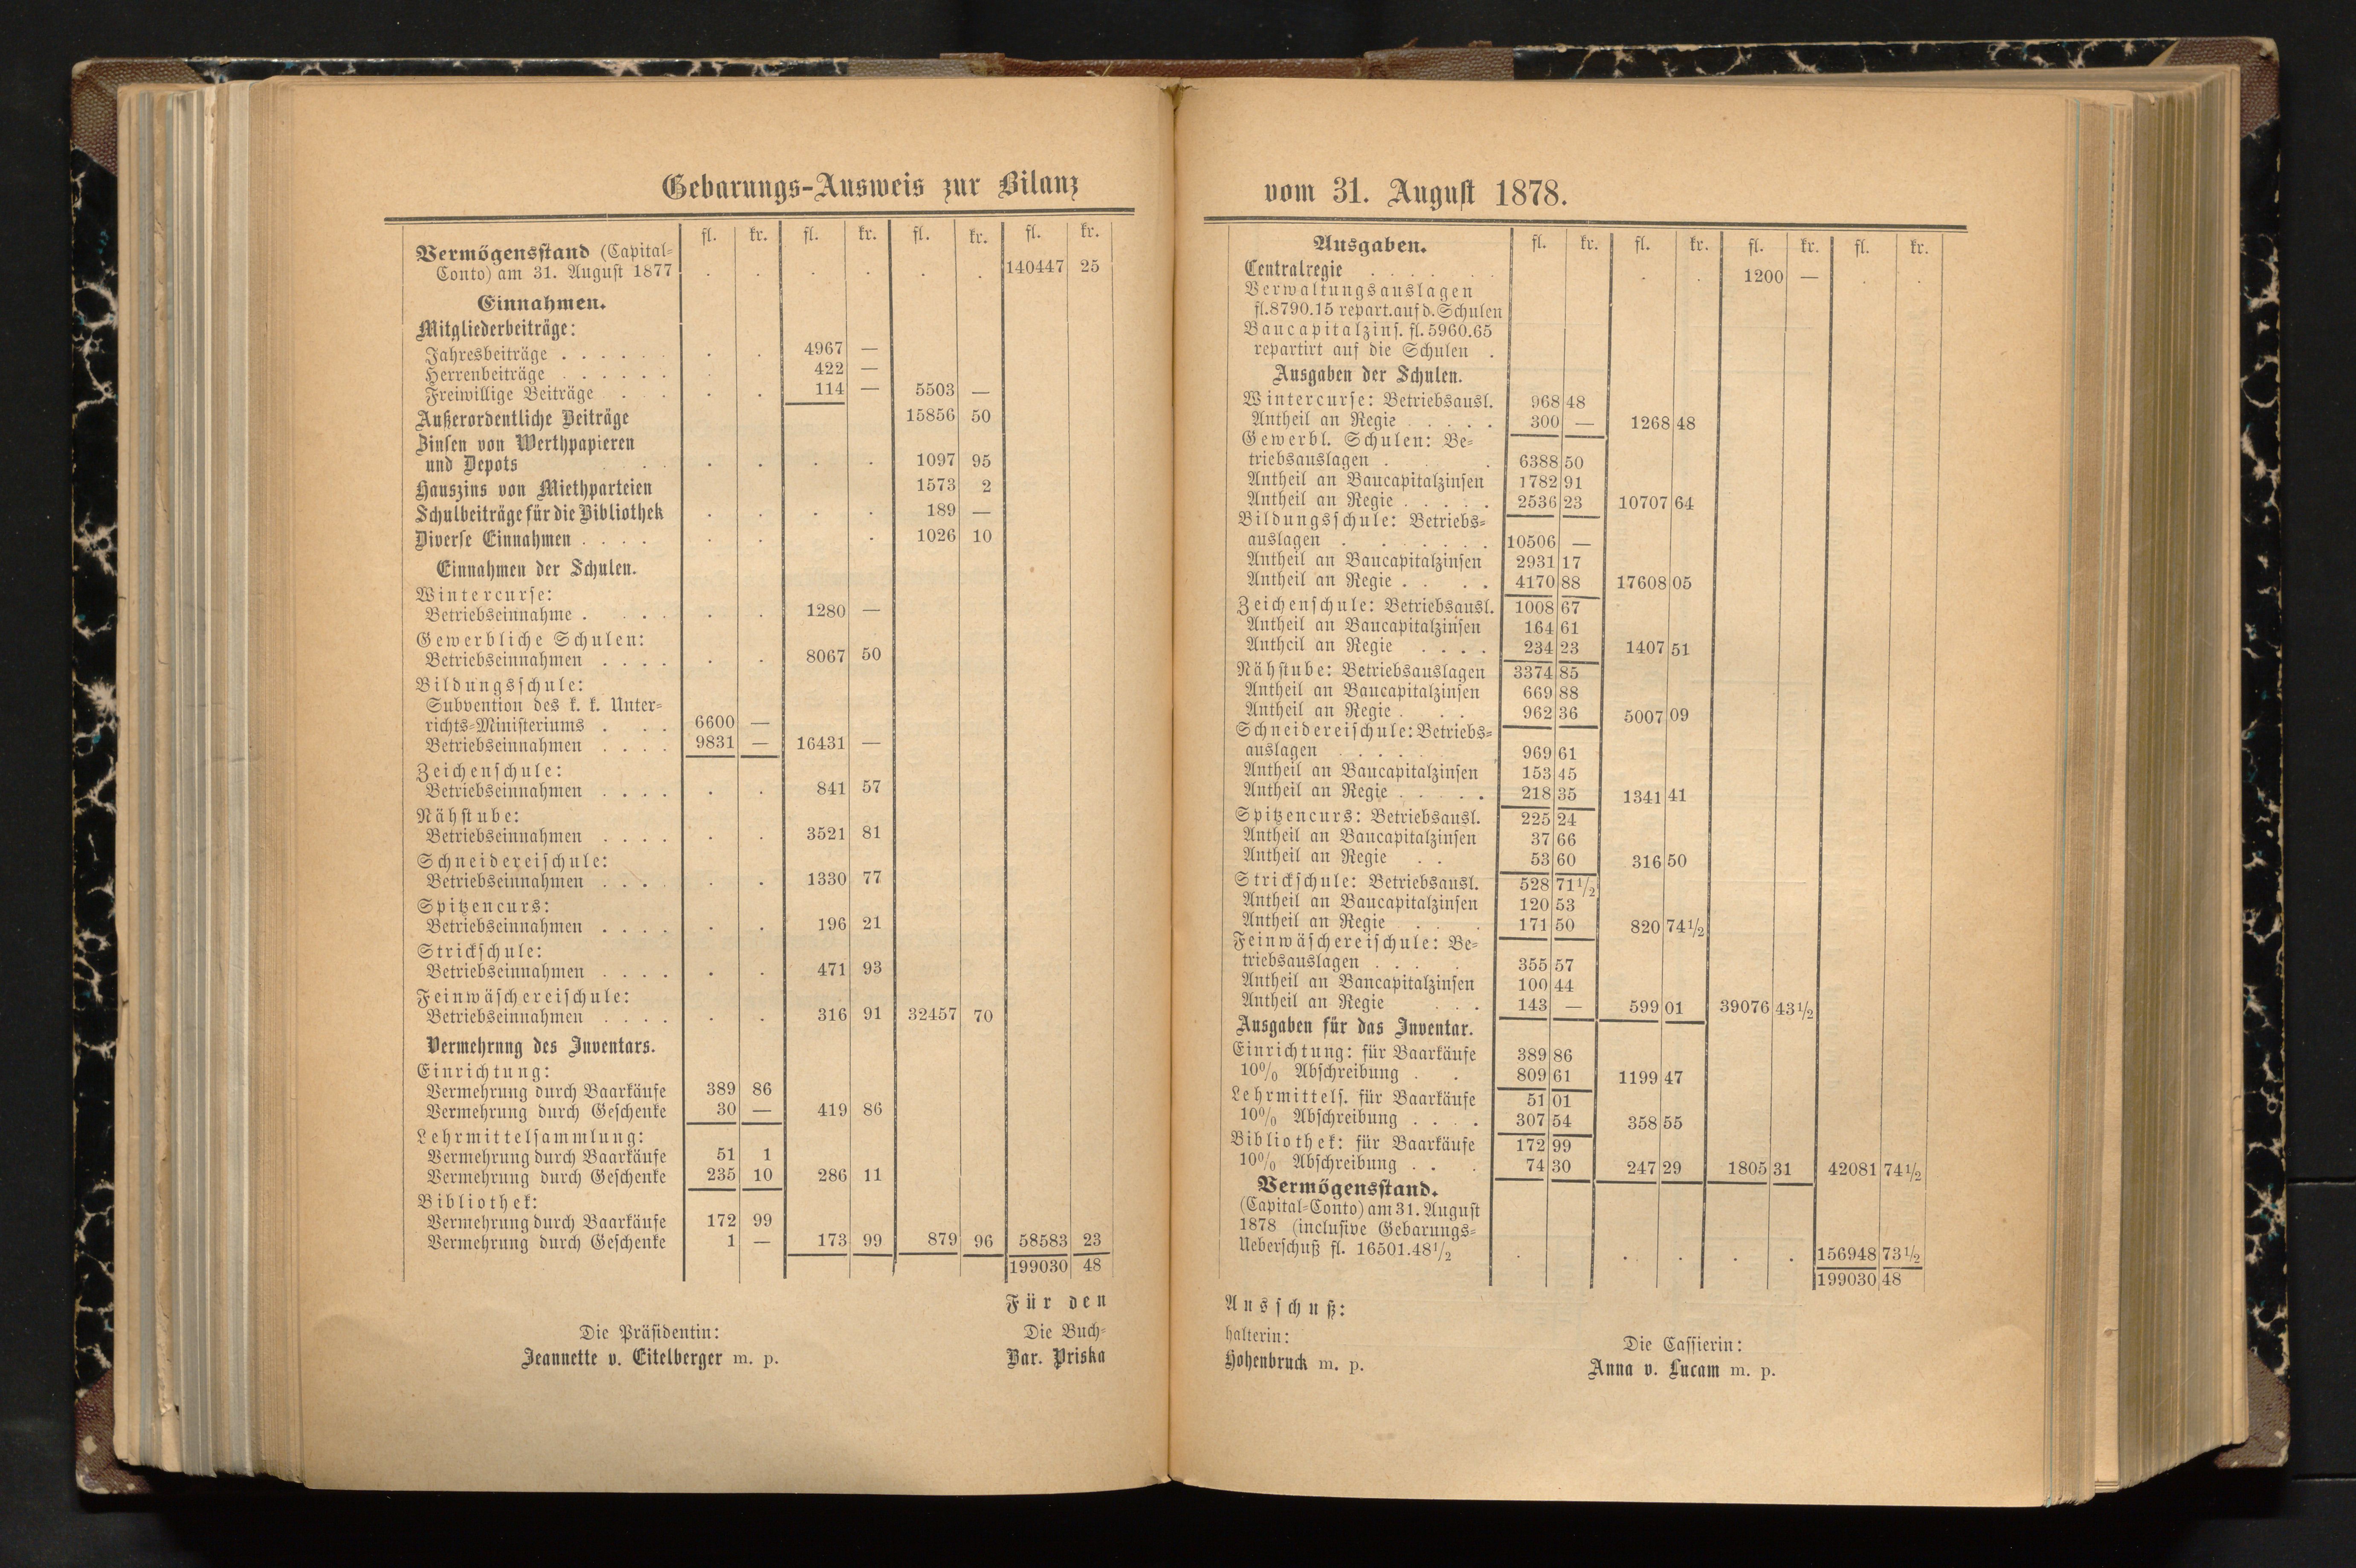 Gebarungs-Ausweis zur Bilanz
fl. kr. fl. kr. fl. kr. fl. kr.
Vermögensstand (Capital-
Conto) am 31. August 1877 . . . . . . 140447 25
Einnahmen.
Mitgliederbeiträge:
Jahresbeiträge . . . . . . . . 4967 —
Herrenbeiträge . . . . . . . 422 —
Freiwillige Beiträge . . . . . 114 — 5503 —
Außerordentliche Beiträge 15856 50
Zinsen von Werthpapieren
und Depots . . . . . . 1097 95
Hauszins von Miethparteien 1573 2
Schulbeiträge für die Bibliothek . . . . 189 —
Diverse Einnahmen . . . . . . . 1026 10
Einnahmen der Schulen.
Wintercurse:
Betriebseinnahme . . . . . . 1280 —
Gewerbliche Schulen:
Betriebseinnahmen . . . . . . 8067 50
Bildungsschule:
Subvention des k. k. Unter-
richts-Ministeriums . . . 6600 —
Betriebseinnahmen . . . . 9831 — 16431 —
Zeichenschule:
Betriebseinnahmen . . . . . . 841 57
Nähstube:
Betriebseinnahmen . . . . . . 3521 81
Schneidereischule:
Betriebseinnahmen . . . . . 1330 77
Spitzencurs:
Betriebseinnahmen . . . . . . 196 21
Strickschule:
Betriebseinnahmen . . . . . . 471 93
Feinwäschereischule:
Betriebseinnahmen . . . . . . 316 91 32457 70
Vermehrung des Inventars.
Einrichtung:
Vermehrung durch Baarkäufe 389 86
Vermehrung durch Geschenke 30 — 419 86
Lehrmittelsammlung:
Vermehrung durch Baarkäufe 51 1
Vermehrung durch Geschenke 235 10 286 11
Bibliothek:
Vermehrung durch Baarkäufe 172 99
Vermehrung durch Geschenke 1 — 173 99 879 96 58583 23
199030 48
Für den
Die Präsidentin: Die Buch-
Jeannette v. Eitelberger m. p. Bar. Priska
vom 31. August 1878.
Ausgaben. fl. kr. fl. kr. fl. kr. fl. kr.
Centralregie . . . . . . . . 1200 — . .
Verwaltungsauslagen
fl. 8790.15 repart. auf d. Schulen
Baucapitalzins. fl. 5960.65
repartirt auf die Schulen .
Ausgaben der Schulen.
Wintercurse: Betriebsausl. 968 48
Antheil an Regie . . . . . 300 — 1268 48
Gewerbl. Schulen: Be-
triebsauslagen . . 6388 50
Antheil an Baucapitalzinsen 1782 91
Antheil an Regie . . . . . 2536 23 10707 64
Bildungsschule: Betriebs-
auslagen . . . . . . . 10506 —
Antheil an Baucapitalzinsen 2931 17
Antheil an Regie . . . . 4170 88 17608 05
Zeichenschule: Betriebsausl. 1008 67
Antheil an Baucapitalzinsen 164 61
Antheil an Regie . . . . 234 23 1407 51
Nähstube: Betriebsauslagen 3374 85
Antheil an Baucapitalzinsen 669 88
Antheil an Regie . . . 962 36 5007 09
Schneidereischule: Betriebs-
auslagen . . . . 969 61
Antheil an Baucapitalzinsen 153 45
Antheil an Regie . . . . . 218 35 1341 41
Spitzencurs: Betriebsausl. 225 24
Antheil an Baucapitalzinsen 37 66
Antheil an Regie . . 53 60 316 50
Strickschule: Betriebsausl. 528 71½
Antheil an Baucapitalzinsen 120 53
Antheil an Regie . . . . 171 50 820 74½
Feinwäschereischule: Be-
triebsauslagen . . . . 355 57
Antheil an Baucapitalzinsen 100 44
Antheil an Regie . . . 143 — 599 01 39076 43½
Ausgaben für das Inventar.
Einrichtung: für Baarkäufe 389 86
10% Abschreibung . . 809 61 1199 47
Lehrmittels. für Baarkäufe 51 01
10% Abschreibung . . . . 307 54 358 55
Bibliothek: für Baarkäufe 172 99
10% Abschreibung . . . 74 30 247 29 1805 31 42081 74½
Vermögensstand.
(Capital-Conto) am 31. August
1878 (inclusive Gebarungs-
Ueberschuß fl. 16501.48½ . . . . . 156948 73½
199030 48
Ausschuß:
halterin: Die Cassierin:
Hohenbruck m. p. Anna v. Lucam m. p.